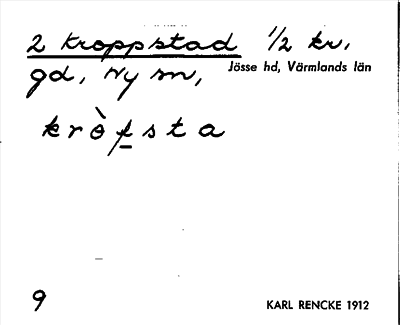 2 Kroppstad 1/2 kr.
gd, Ny sn,
Jösse hd, Värmlands län
krò̀f̲sta
9
KARL RENCKE 1912